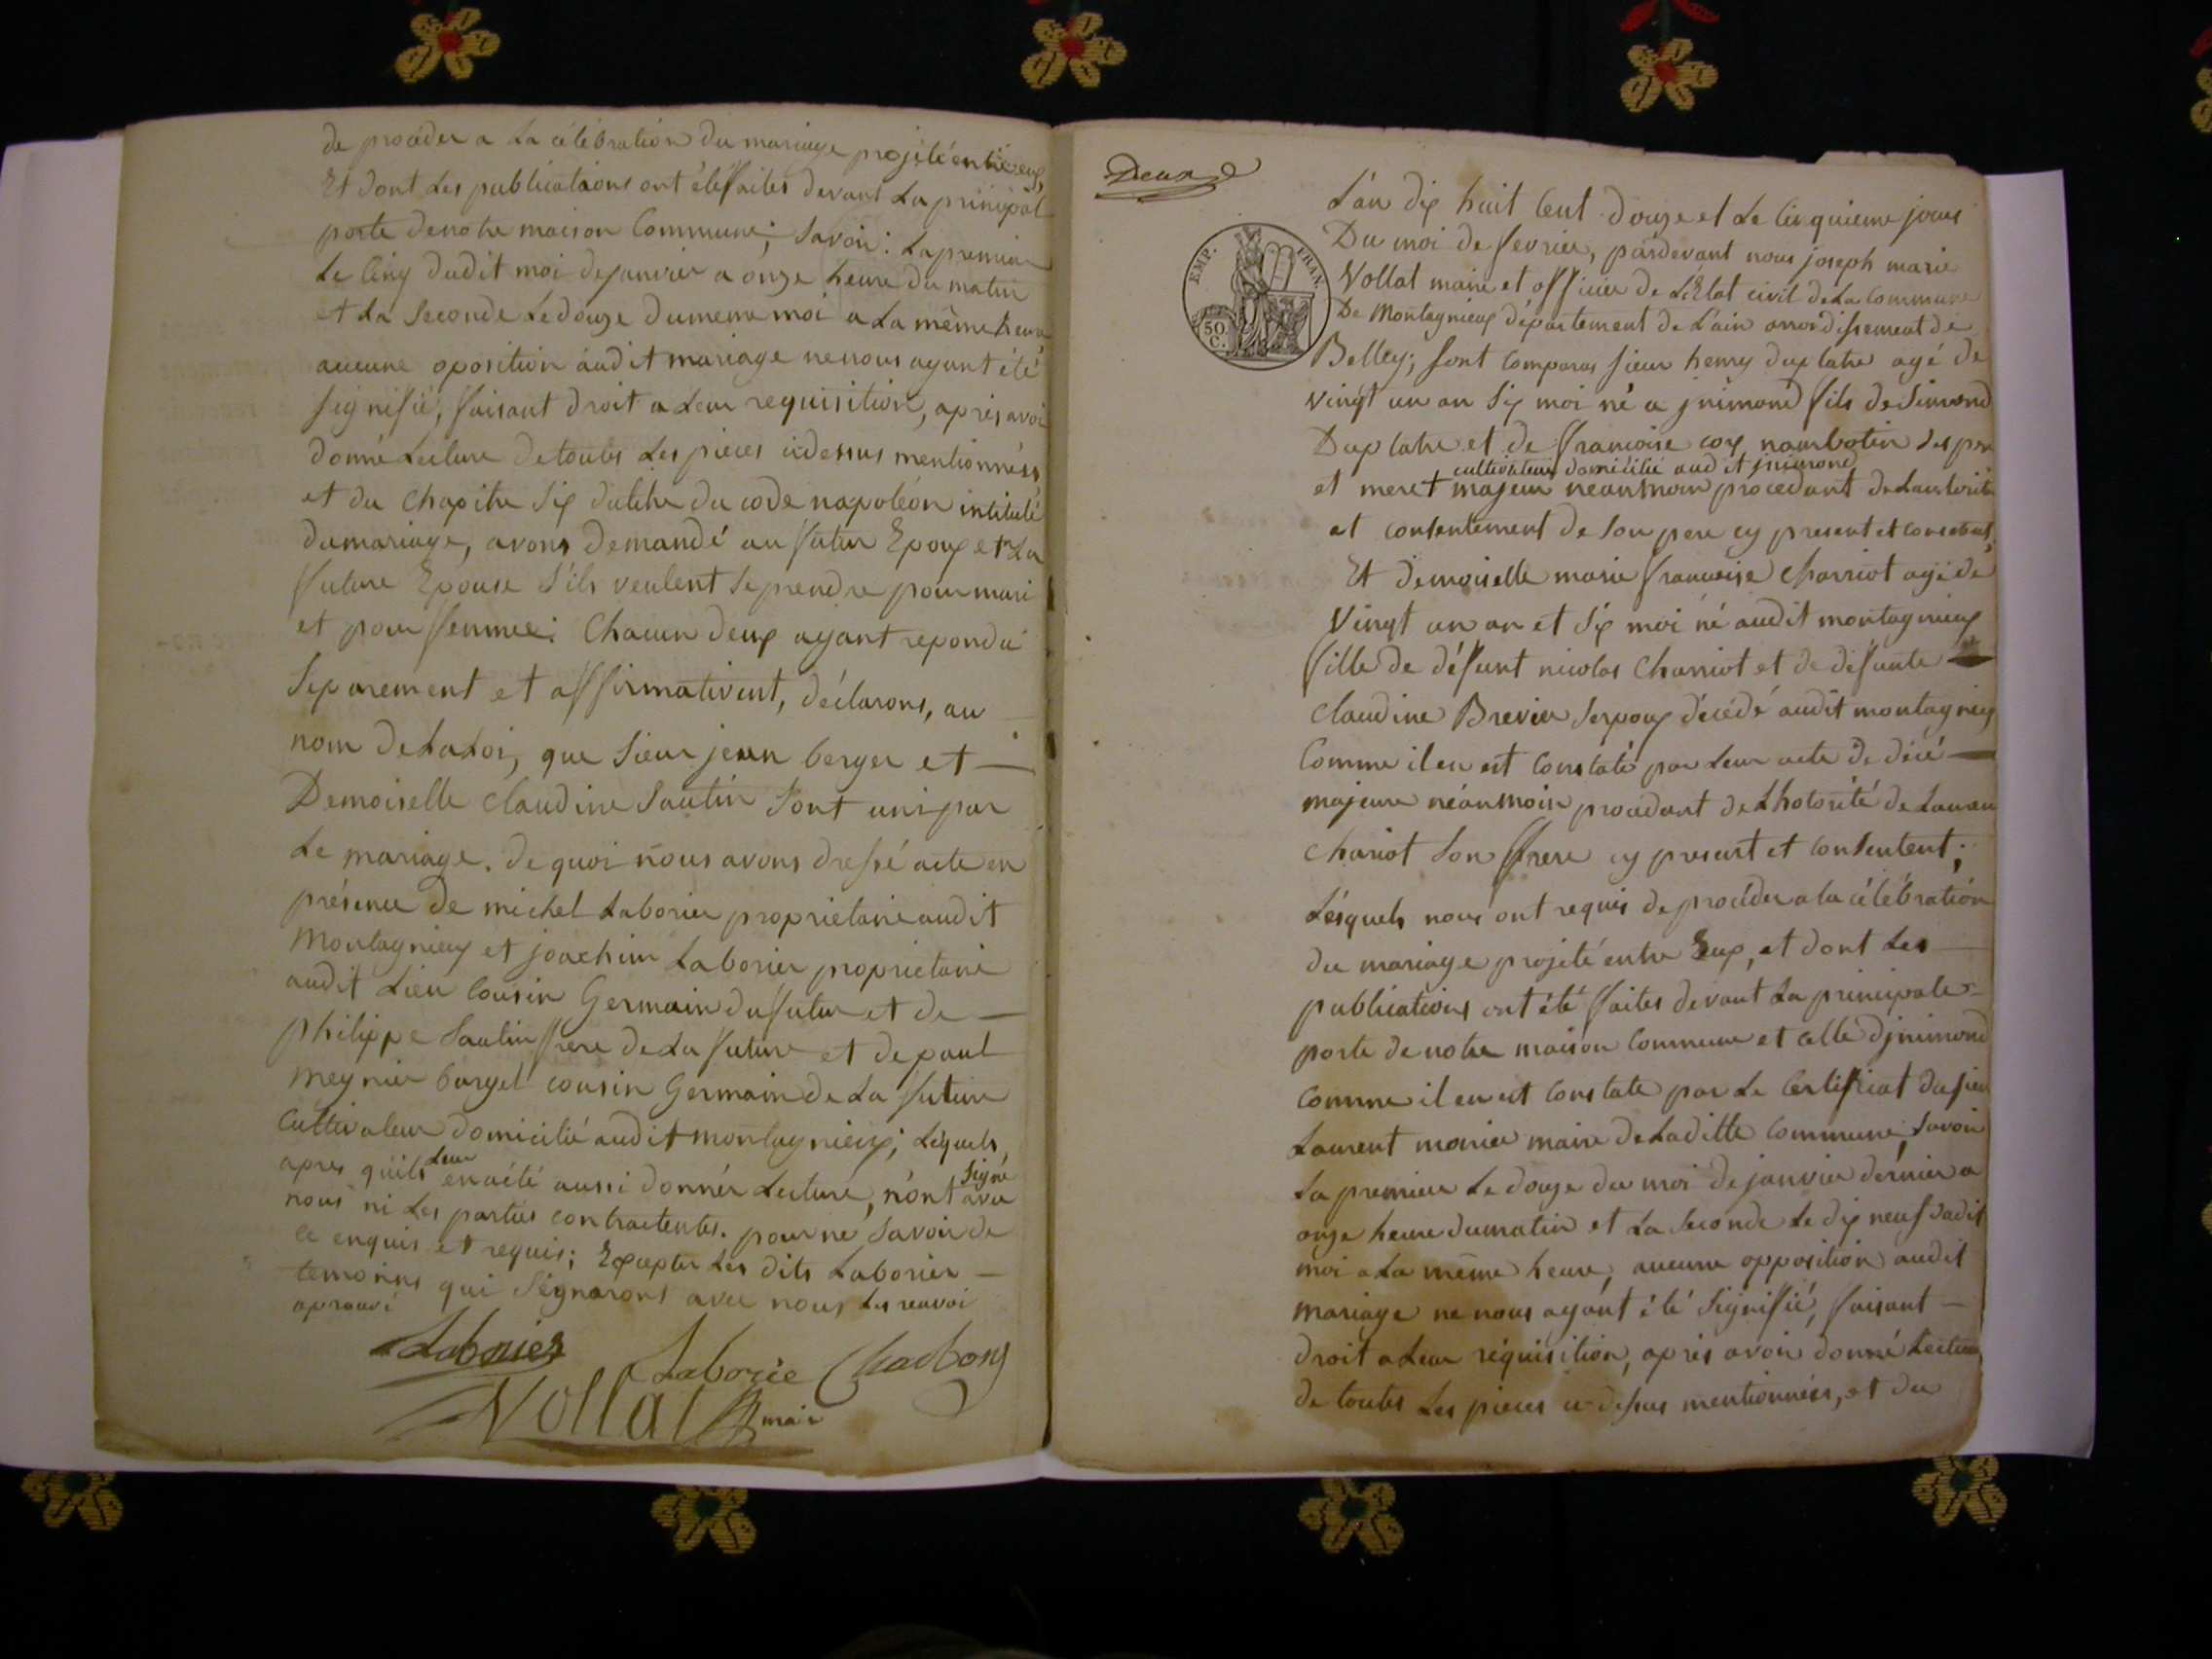 de proceder a la célébration du mariage projété entre eux,
Et dont les publications ont été faites devant la principal
porte denotre maison Commune; Savoir: la premiere
le Cinq dudit moi dejanvier a onze heure du matin
et la Seconde le douze dumeme moi a la même heure
aucune oposition audit mariage nenous ayant été
Signifié, faisant droit a leur requisition, apres avoir
donné lecture detoutes les pieces cidessus mentionnées
et du Chapitre Six dutitre du code napoléon intitulé
dumariage, avons demandé au futur Epoux et a la
future Epouse S'ils veulent se prendre pour mari
et pour femme: Chacun deux ayant repondu
Séparement et affirmativent, déclarons, au
nom delaloi, que Sieur jean berger et
Demoiselle claudine Sautin Sont uni par
le mariage. de quoi nous avons dressé acte en
présence de michel laborier proprietaire audit
Montagnieux et joachim laborier proprietaire
audit lieu Cousin Germain du futur et de
philippe Sautin frere de la future et depaul
meynier bargel cousin Germain de la future
Cultivateur domicilié audit montagnieux; léquels,
apres qu'ils leur en aété aussi donnér lecture, n'ont Signé avec
nous ni les parties contractentes. pour ne Savoir de
ce enquis et requis; Excepter les dits laborier
temoinns qui Signerons avec nous les renvoi
aprouvé
Laborier
Laborie Charbon
Vollat mair
Deux
L'an dix huit Cent douze et le Cinquieme jours
Du moi de fevrier, pardevant nous joseph marie
Vollat maire et officier de L'Etat civil de la Commune
De Montagnieux département de l'ain arrondissement de
Belley; Sont Comparus Sieur henry duplatre agé de
vingt un an Six moi né a jnimond fils de Simond
Duplatre et de francoise coy nambotin Ses pere
cultivateur domicilié audit jnimond
et mere + majeur neanmoin procedant de lautorité
et consentement de Son pere cy present et consentant,
Et demoiselle marie francoise Charriot agé de
Vingt un an et Six moi né audit montagnieux
fille de défunt nicolas Charriot et de défunte
Claudine Brevier Sexpoux décédé audit montagnieux
Comme il en est Constaté par leur acte de décé
majeure néanmoin procedant de L'hotorité de Lauren
Chariot Son frere cy present et Consentent;
Lésquels nous ont requis de procéder a la célébration
du mariage projeté entre Eux, et dont les
publications ont été faites devant la principale
porte de notre maison Commune et celle djnimond
Comme il en est Constate par le Certificat du Sieur
Laurent monier maire de laditte Commune, Savoir
la premiere le douze du moi de janvier dérnier a
onze heure dumatin et la Seconde le dix neuf dudit
moi a la même heure, aucune opposition audit
mariage ne nous ayant été Signifié, faisant
droit a leur réquisition, après avoir donné lecture
de toutes les pieces ci-dessus mentionnées, et du
EMP. FRAN.
50.
C.